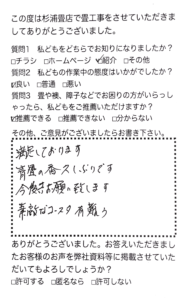 この度は杉浦畳店で畳工事をさせていただきま
してありがとうございました。
質問1 私どもをどちらでお知りになりましたか?
□チラシ □ホームページ ☑紹介 □その他
質問2 私どもの作業中の態度はいかがでしたか?
☑良い □普通 □悪い
質問3 畳や襖、障子などでお困りの方がいらっし
ゃったら、私どもをご推薦いただけますか?
☑推薦できる □推薦できない □分からない
その他、ご意見がございましたらお書き下さい。
満足しております
青畳の
今後もお願い致します
素敵な 有難う
ありがとうございました。お答えいただきまし
たお客様のお声を弊社資料等に掲載させていた
だいてもよろしでしょうか?
□許可する □匿名なら □許可しない